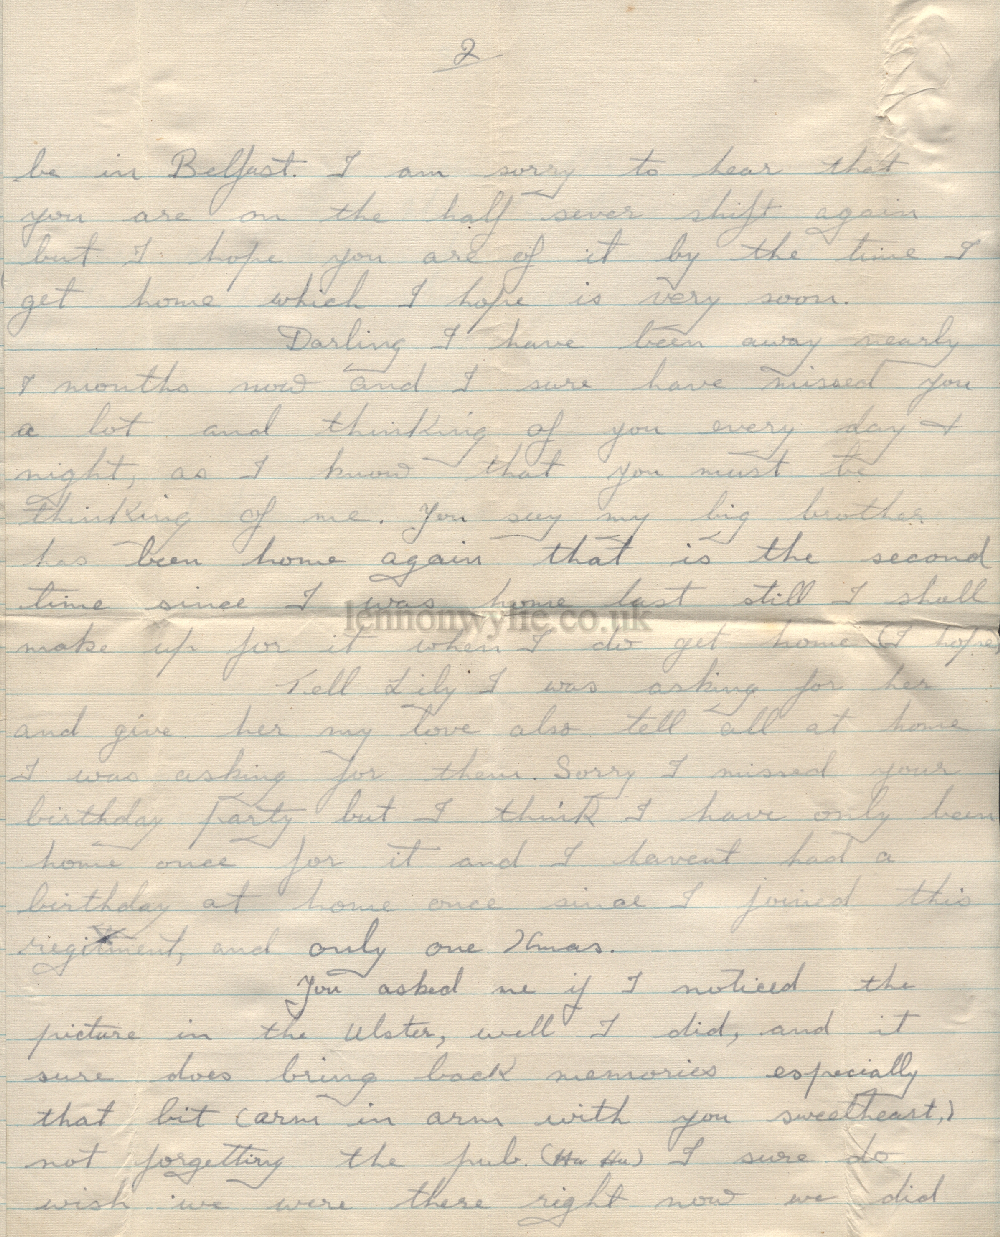 2
be in Belfast. I am sorry to hear that
you are on the half sever shift again
but I hope you are of it by the time I
get home which I hope is very soon.
Darling I have been away nearly
7 months now and I sure have missed you
a lot and thinking of you every day &
night, as I know that you must be
thinking of me. You say my big brother
has been home again that is the second
time since I was home last still I shall
lennonwylie.co.uk
make up for it when I do get home (I hope)
Tell Lily I was asking for her
and give her my love also tell all at home
I was asking for them. Sorry I missed your
birthday party but I think I have only been
home once for it and I havent had a
birthday at home once since I joined this
riegitment, and only one Xmas.
You asked me if I noticed the
picture in the Ulster, well I did, and it
sure does bring back memories especially
that bit (arm in arm with you sweetheart,)
not forgetting the pub. (Ha Ha) I sure do
wish we were there right now we did